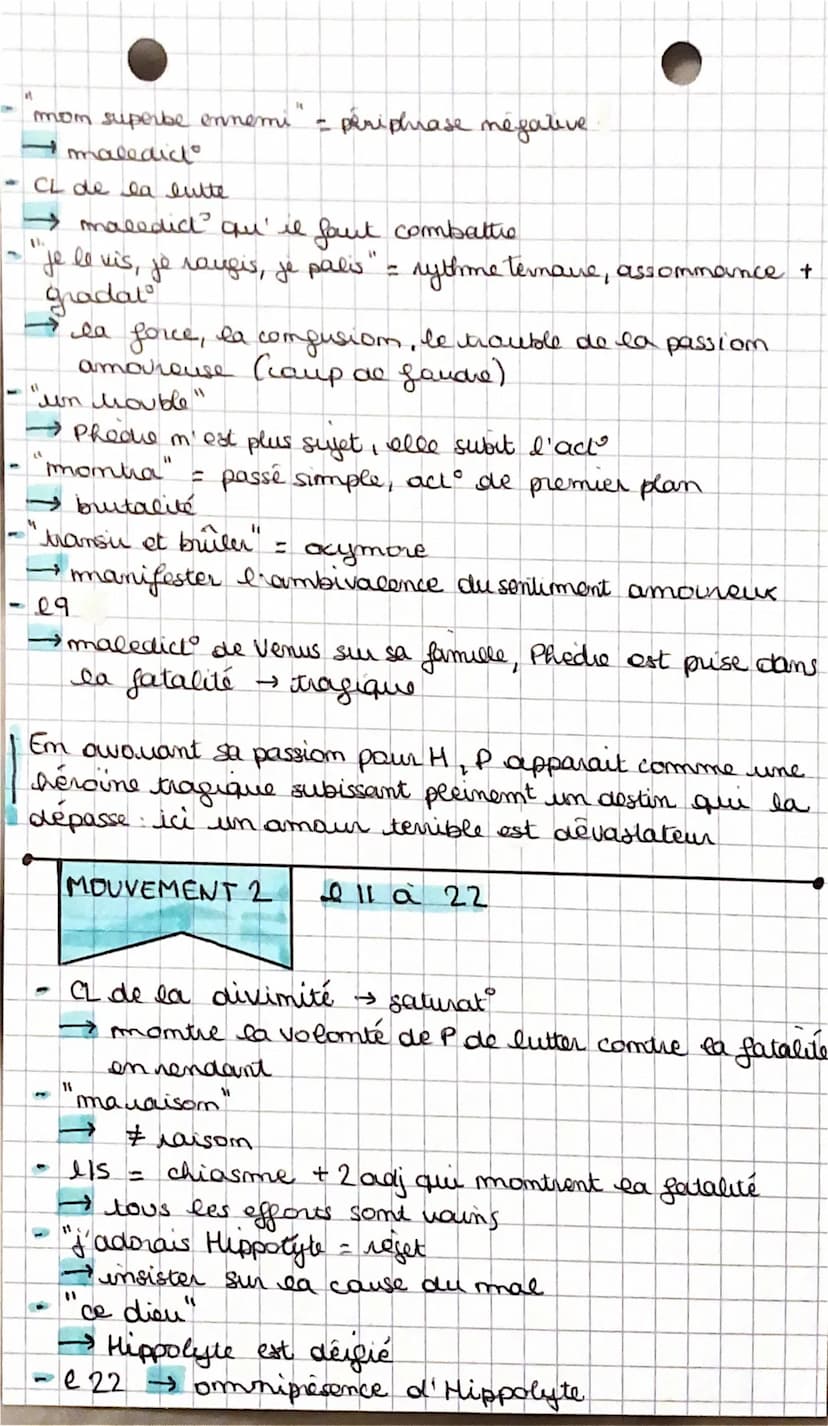 - "mon superbe ennemi" = périphrase négative
→ maledict°
- CL de la lutte
→ maledict° qu'il faut combattre
- "je le vis, je rougis, je palis" = rythme ternaire, assonnance +
gradat°
→ la force, la confusion, le trouble de la passion
amoureuse (coup de foudre)
- "un trouble"
→ Phèdre n'est plus sujet, elle subit l'act°
- "montra" = passé simple, act° de premier plan
→ brutalité
- "transir et brûler" = oxymore
→ manifester l'ambivalence du sentiment amoureux
- l9
→ maledict° de Venus sur sa famille, Phèdre est prise dans
la fatalité → tragique
En avouant sa passion pour H, P apparait comme une
héroïne tragique subissant pleinemt un destin qui la
dépasse : ici un amour terrible est dévastateur
MOUVEMENT 2 l 11 à 22
- CL de la divinité → saturat°
→ montre la volonté de P de lutter contre la fatalité
en rendant
- "ma raison"
→ ≠ raison
- l15 = chiasme + 2 adj qui montrent la fatalité
→ tous les efforts sont vains
- "j'adorais Hippolyte = rejet
→ insister sur la cause du mal
- "ce dieu"
→ Hippolyte est déifié
- l 22 → omniprésence d'Hippolyte